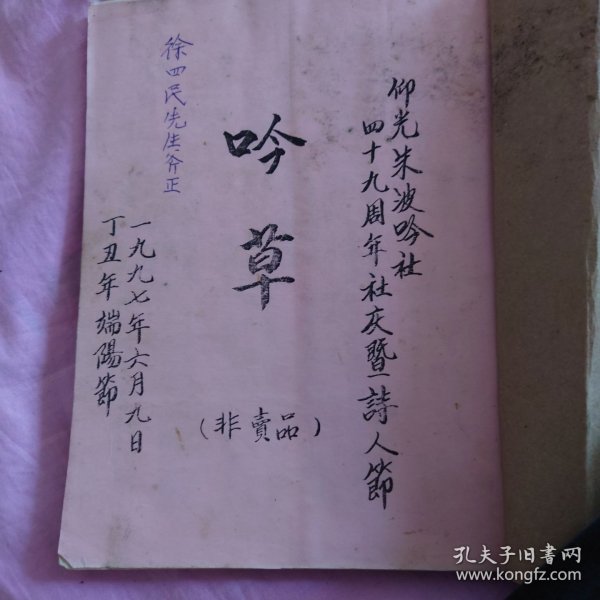 仰光朱波吟社
四十九周年社庆暨詩人節
吟草
(非賣品)
徐四民先生斧正
一九九七年六月九日
丁丑年端陽節
孔夫子旧书网
www.kongfz.com